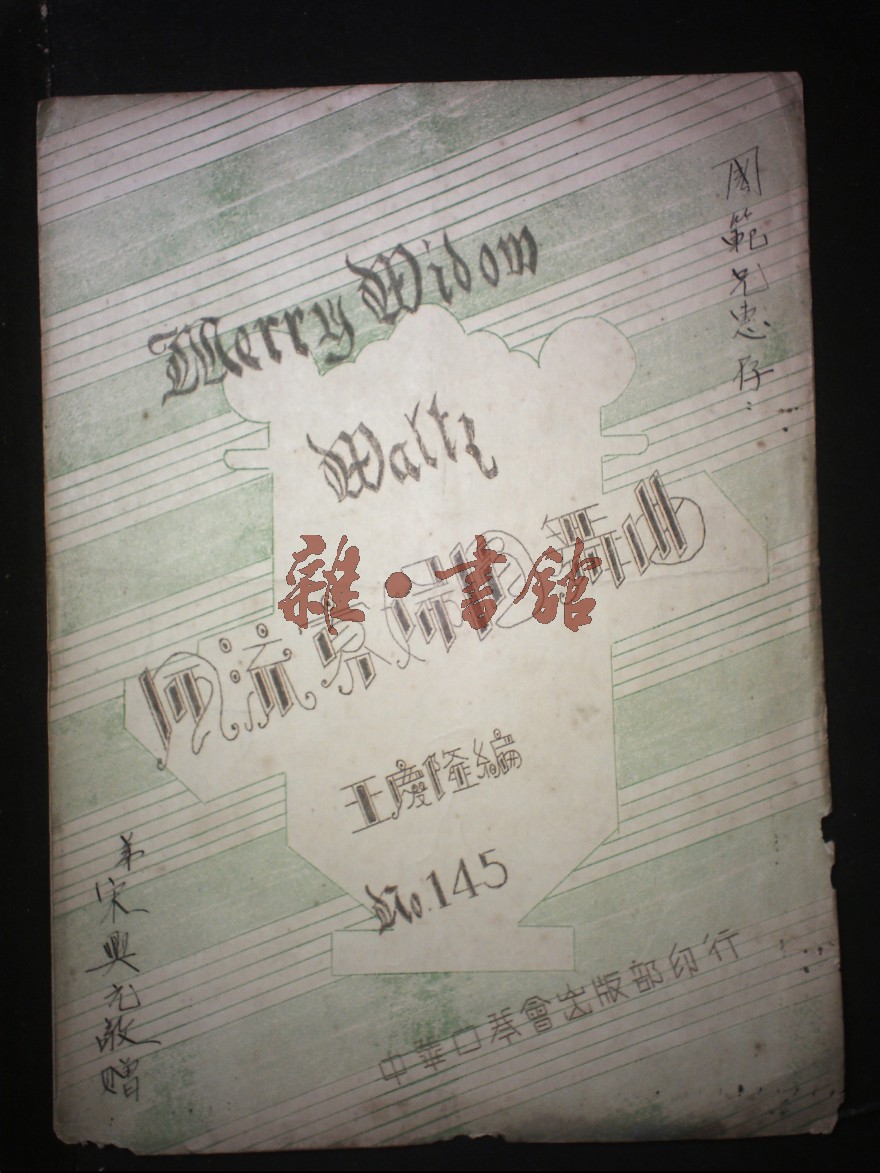 國範兄惠存：
Merry Widow
Waltz
風流寡婦圓舞曲
雜·書館
王慶隆編
No.145
中華口琴會出版部印行
弟宋興元敬贈